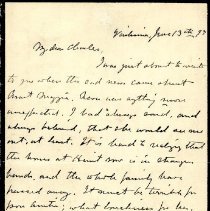 June 13th, 97
My dear Charles,
I was just about to write
to you when the sad news came about
Aunt Maggie. Never was anything more
unexpected. I had always said, and
always believed, that she would see me
out, at least. It is hard to realize that
the house at Point now is in strangers
hands, and the whole family have
passed away. It must be terrible for
poor ; what loneliness for her,